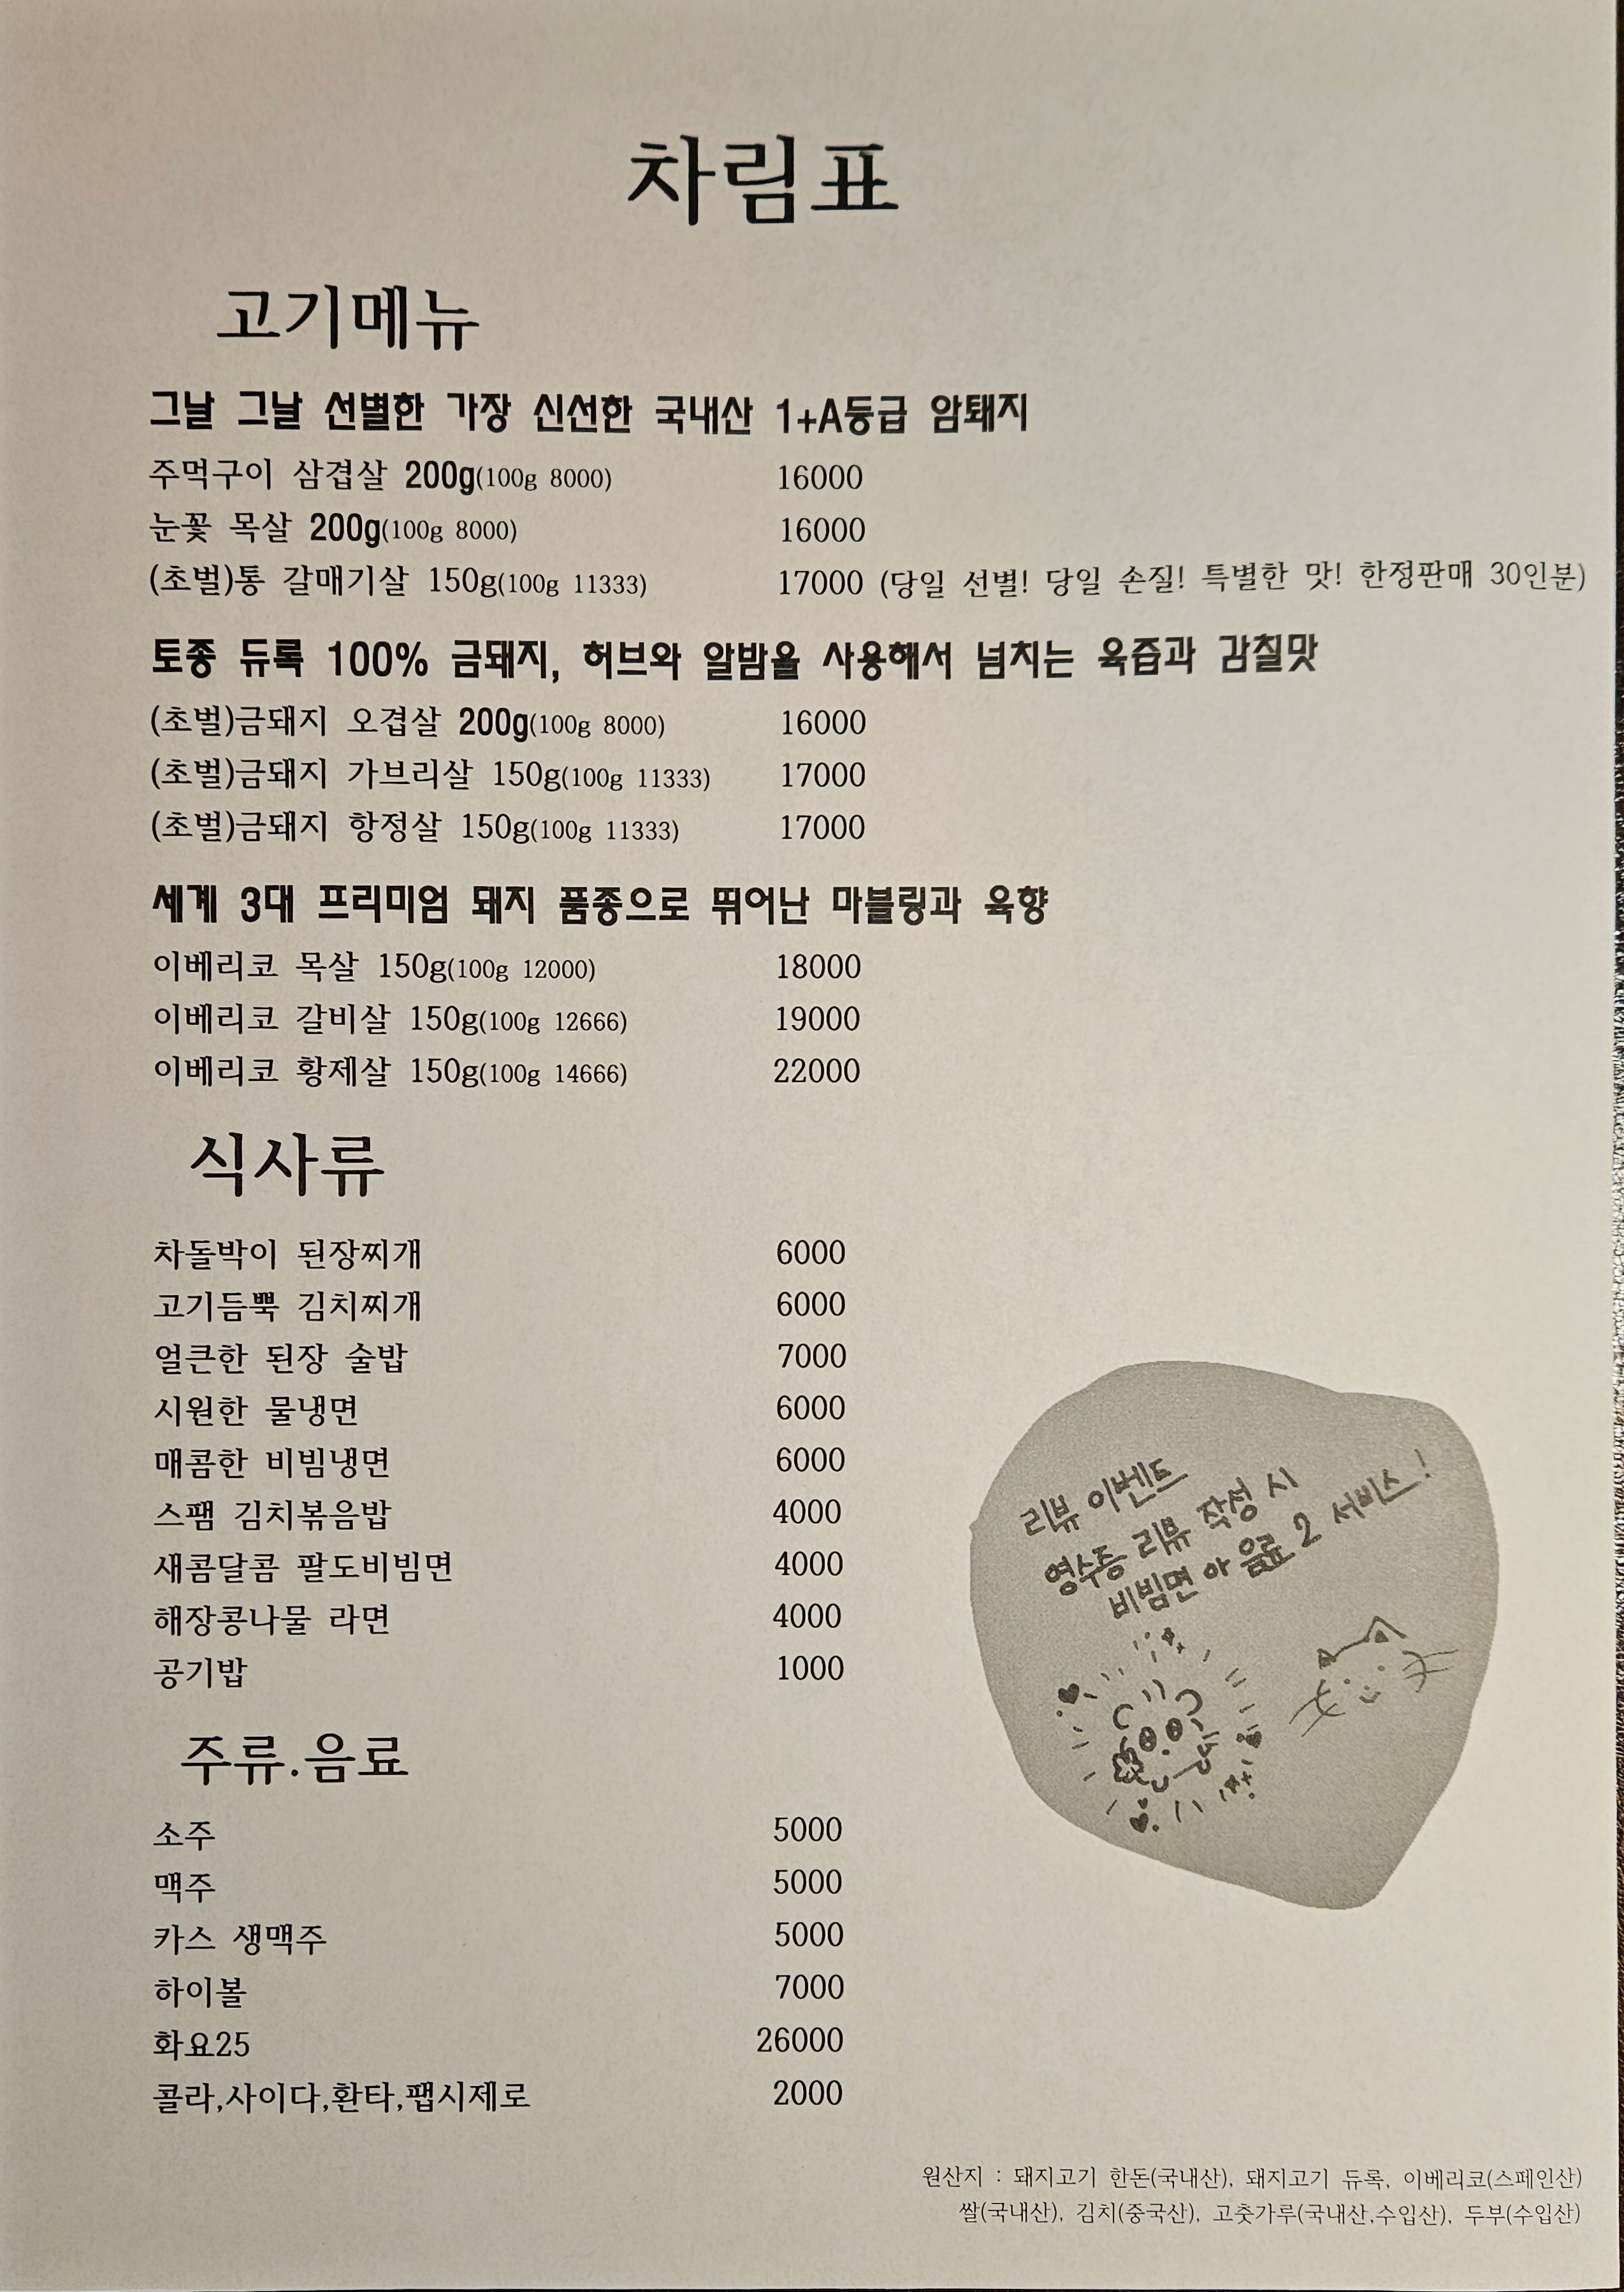 차림표
고기메뉴
그날 그날 선별한 가장 신선한 국내산 1+A등급 암퇘지
주먹구이 삼겹살 200g(100g 8000) 16000
눈꽃 목살 200g(100g 8000) 16000
(초벌)통 갈매기살 150g(100g 11333) 17000 (당일 선별! 당일 손질! 특별한 맛! 한정판매 30인분)
토종 듀록 100% 금돼지, 허브와 알밤을 사용해서 넘치는 육즙과 감칠맛
(초벌)금돼지 오겹살 200g(100g 8000) 16000
(초벌)금돼지 가브리살 150g(100g 11333) 17000
(초벌)금돼지 항정살 150g(100g 11333) 17000
세계 3대 프리미엄 돼지 품종으로 뛰어난 마블링과 육향
이베리코 목살 150g(100g 12000) 18000
이베리코 갈비살 150g(100g 12666) 19000
이베리코 황제살 150g(100g 14666) 22000
식사류
차돌박이 된장찌개 6000
고기듬뿍 김치찌개 6000
얼큰한 된장 술밥 7000
시원한 물냉면 6000
매콤한 비빔냉면 6000
스팸 김치볶음밥 4000
새콤달콤 팔도비빔면 4000
해장콩나물 라면 4000
공기밥 1000
리뷰 이벤트
영수증 리뷰 작성 시
비빔면 or 음료 2 서비스!
주류.음료
소주 5000
맥주 5000
카스 생맥주 5000
하이볼 7000
화요25 26000
콜라,사이다,환타,팹시제로 2000
원산지 : 돼지고기 한돈(국내산), 돼지고기 듀록, 이베리코(스페인산)
쌀(국내산), 김치(중국산), 고춧가루(국내산,수입산), 두부(수입산)